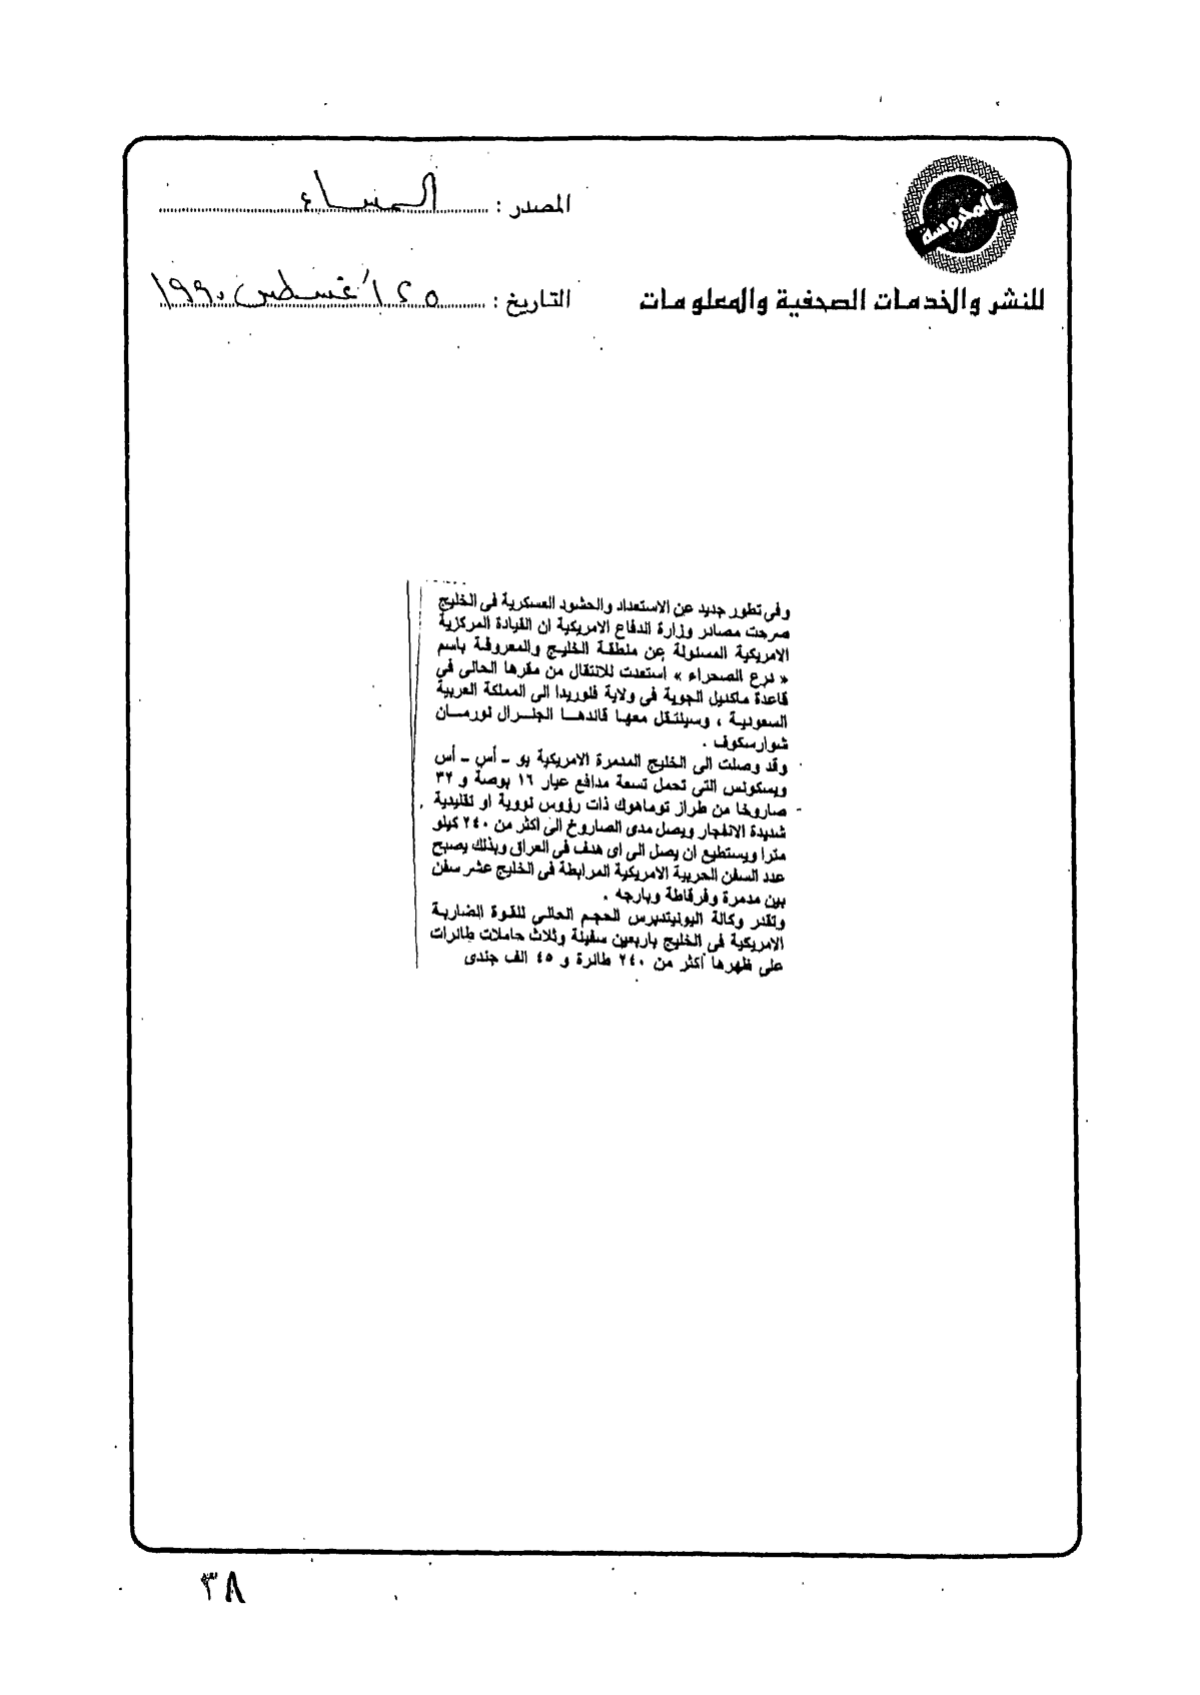 المحروسة
للنشر والخدمات الصحفية والمعلومات
المصدر : المساء
التاريخ : ٢٥ أغسطس ١٩٩٠
وفى تطور جديد عن الاستعداد والحشود العسكرية فى الخليج
صرحت مصادر وزارة الدفاع الامريكية ان القيادة المركزية
الامريكية المسئولة عن منطقة الخليج والمعروفة باسم
« درع الصحراء » استعدت للانتقال من مقرها الحالى فى
قاعدة ماكديل الجوية فى ولاية فلوريدا الى المملكة العربية
السعودية ، وسينتقل معها قائدها الجنرال نورمان
شوارسكوف .
وقد وصلت الى الخليج المدمرة الامريكية يو ـ أس ـ أس
ويسكونس التى تحمل تسعة مدافع عيار ١٦ بوصة و ٣٢
صاروخا من طراز توماهوك ذات رؤوس نووية او تقليدية
شديدة الانفجار ويصل مدى الصاروخ الى اكثر من ٢٤٠ كيلو
مترا ويستطيع ان يصل الى اى هدف فى العراق وبذلك يصبح
عدد السفن الحربية الامريكية المرابطة فى الخليج عشر سفن
بين مدمرة وفرقاطة وبارجه .
وتقدر وكالة اليونيتدبرس الحجم الحالى للقوة الضاربة
الامريكية فى الخليج باربعين سفينة وثلاث حاملات طائرات
على ظهرها أكثر من ٢٤٠ طائرة و ٤٥ الف جندى
٣٨